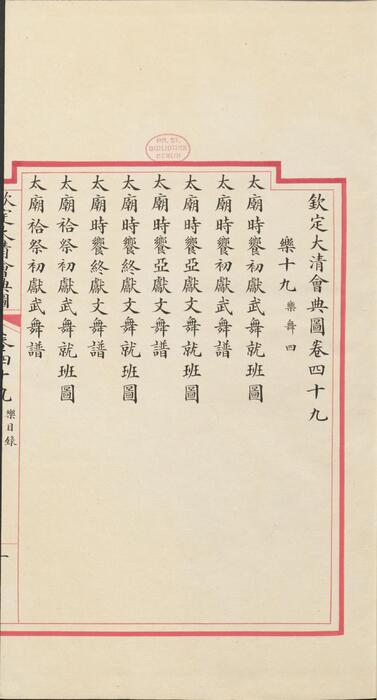 欽定大清會典圖卷四十九
樂十九 樂舞四
太廟時饗初獻武舞就班圖
太廟時饗初獻武舞譜
太廟時饗亞獻文舞就班圖
太廟時饗亞獻文舞譜
太廟時饗終獻文舞就班圖
太廟時饗終獻文舞譜
太廟祫祭初獻武舞就班圖
太廟祫祭初獻武舞譜
欽定大清會典圖
卷四十九
樂目錄
一
PR. ST.
BIBLIOTHEK
BERLIN